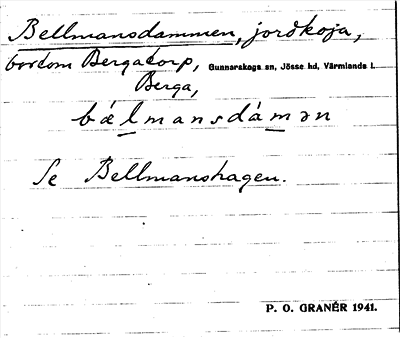 Bellmansdammen, jordkoja,
bortom Bergatorp, Gunnarskogs sn, Jösse hd, Värmlands l.
Berga,
bælmansdámən
Se Bellmanshagen.
P. O. GRANÉR 1941.